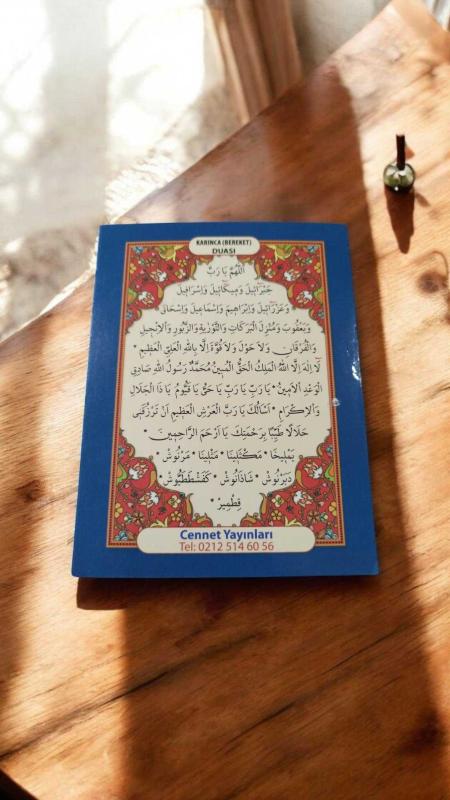 KARINCA (BEREKET)
DUASI
اَللّٰهُمَّ يَا رَبَّ
جَبْرَائِيلَ وَمِيكَائِيلَ وَاِسْرَافِيلَ
وَعَزْرَائِيلَ وَاِبْرَاهِيمَ وَاِسْمَاعِيلَ وَاِسْحَاقَ
وَيَعْقُوبَ وَمُنْزِلَ الْبَرَكَاتِ وَالتَّوْرٰيةِ وَالزَّبُورِ وَالْاِنْجِيلِ
وَالْفُرْقَانِ وَلَا حَوْلَ وَلَا قُوَّةَ اِلَّا بِاللّٰهِ الْعَلِيِّ الْعَظِيمِ *
لَا اِلٰهَ اِلَّا اللّٰهُ الْمَلِكُ الْحَقُّ الْمُبِينُ مُحَمَّدٌ رَسُولُ اللّٰهِ صَادِقُ
الْوَعْدِ الْاَمِينُ * يَا رَبِّ يَا رَبِّ يَا حَيُّ يَا قَيُّومُ يَا ذَا الْجَلَالِ
وَالْاِكْرَامِ * اَسْاَلُكَ يَا رَبَّ الْعَرْشِ الْعَظِيمِ اَنْ تَرْزُقَنِى
حَلَالًا طَيِّبًا بِرَحْمَتِكَ يَا اَرْحَمَ الرَّاحِمِينَ *
يَمْلِيخَا * مَكْثَلِينَا * مَثْلِينَا * مَرْنُوشْ *
دَبَرْنُوشْ * شَاذَنُوشْ * كَفَشْطَطَيُّوشْ *
* قِطْمِيرْ *
Cennet Yayınları
Tel: 0212 514 60 56